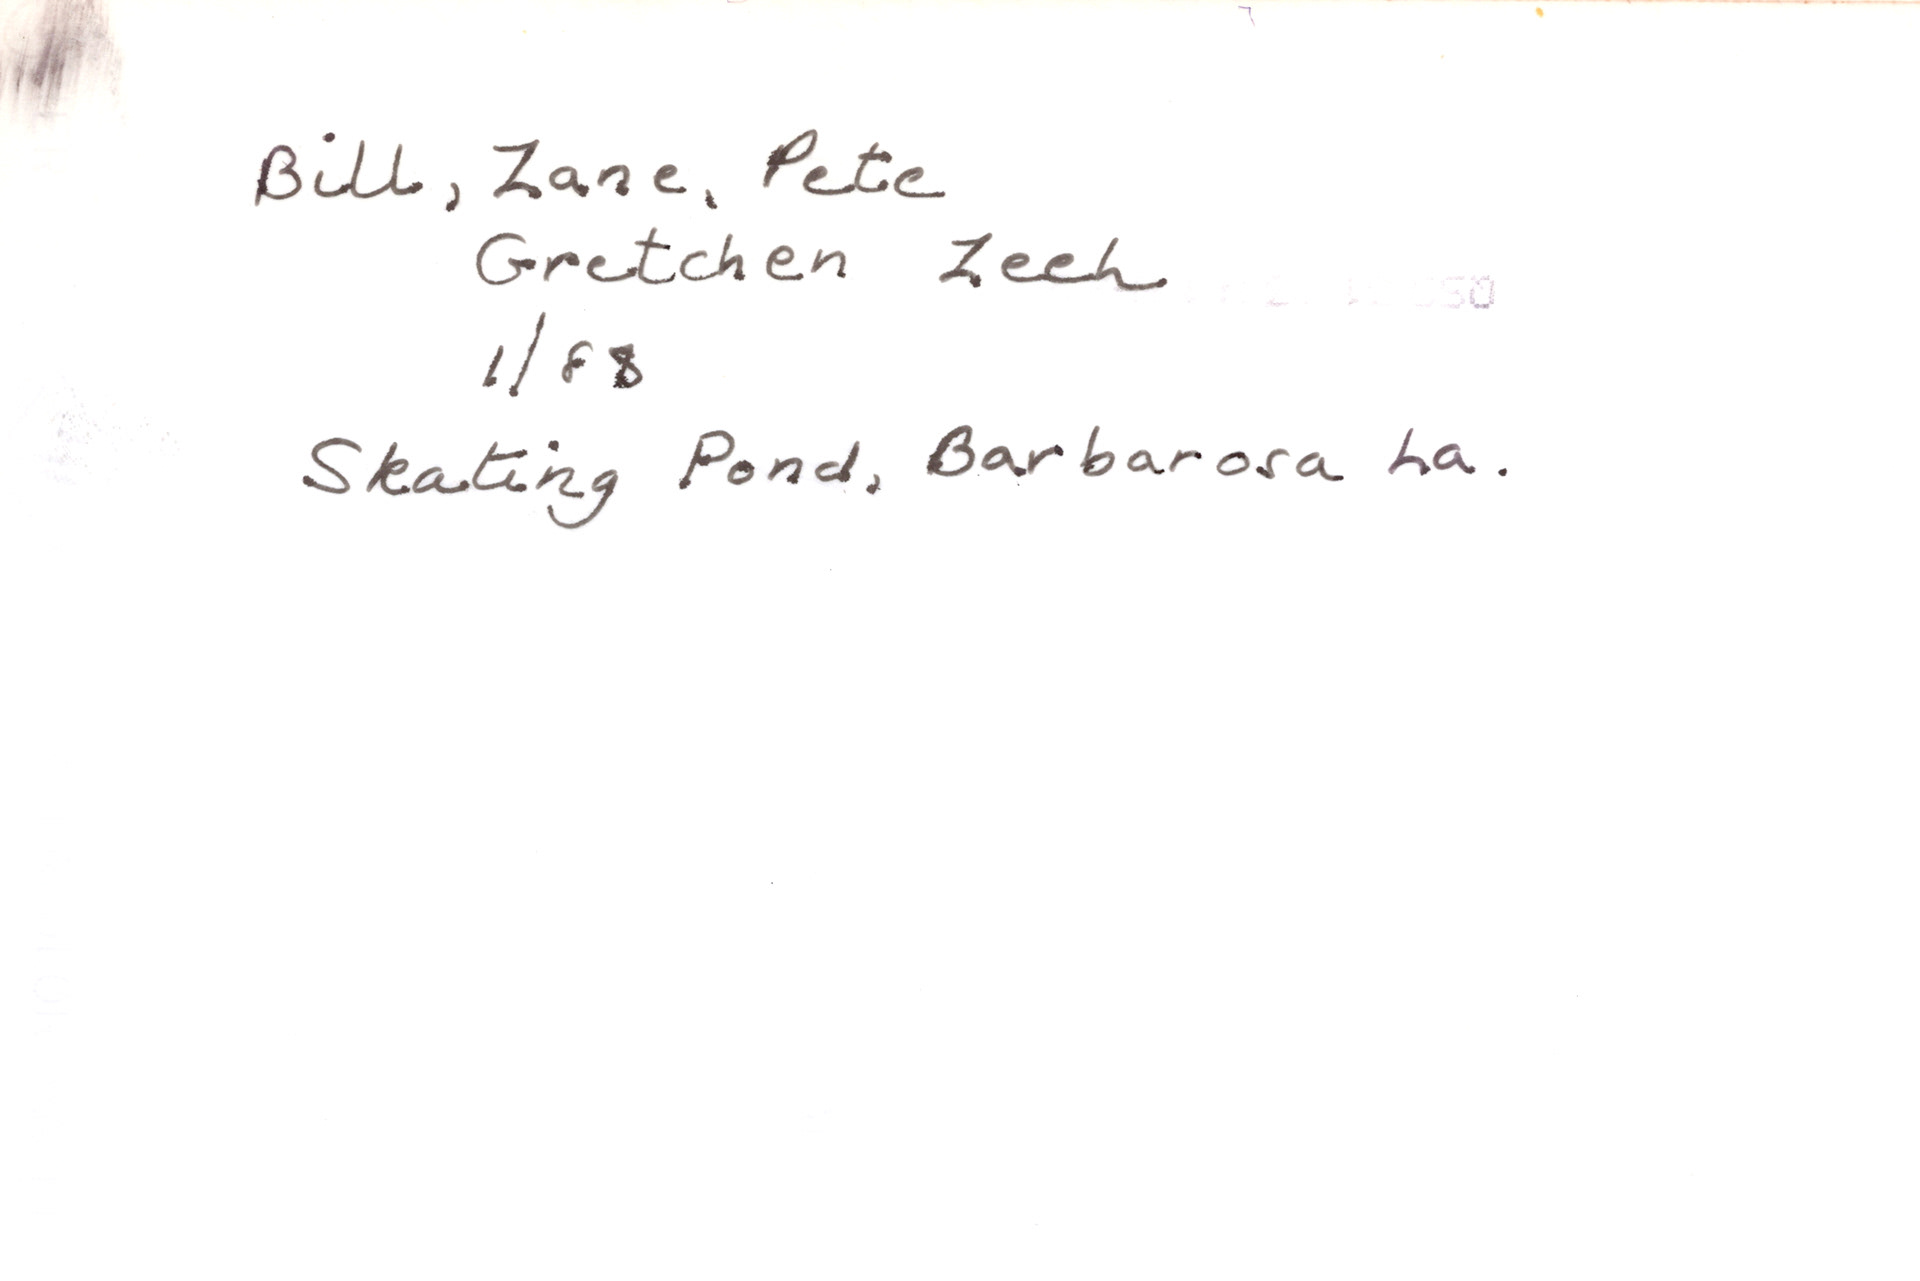 Bill, Zane, Pete
Gretchen Zech
1/88
Skating Pond, Barbarosa La.